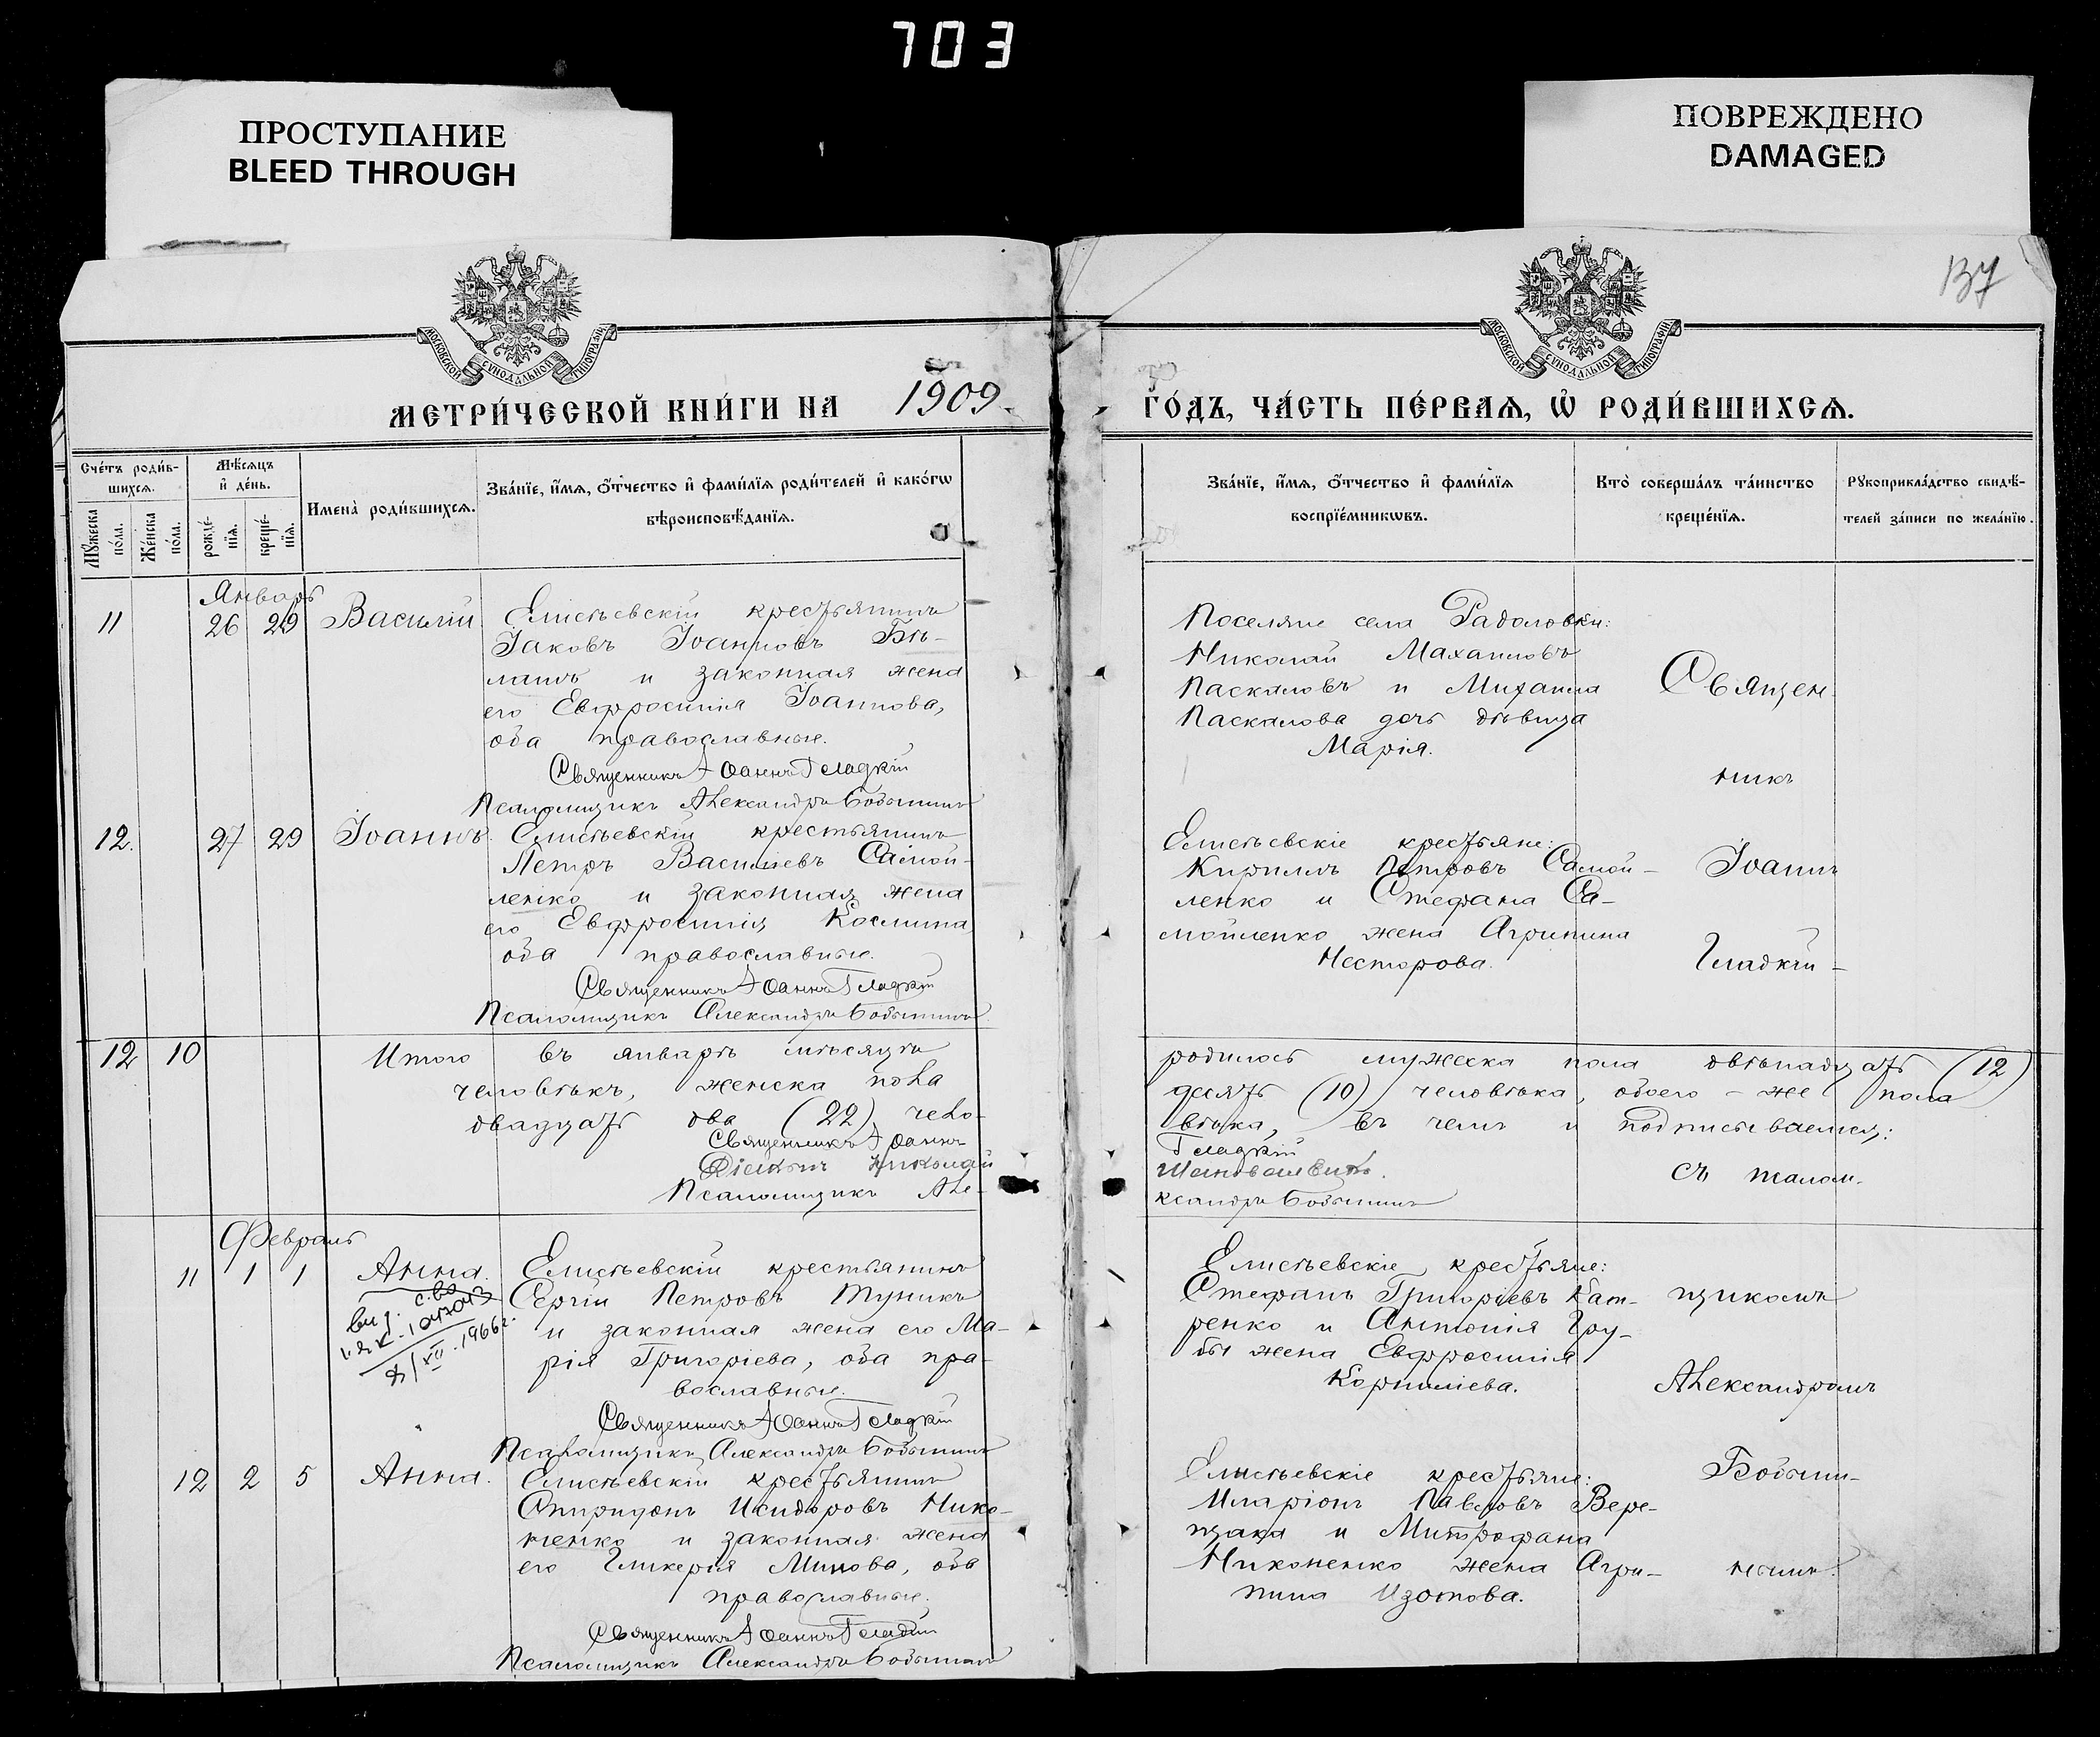 703
ПРОСТУПАНИЕ
BLEED THROUGH
ПОВРЕЖДЕНО
DAMAGED
137
МОСКОВСКОЙ СѴНОДАЛЬНОЙ ТИПОГРАФІИ
МОСКОВСКОЙ СѴНОДАЛЬНОЙ ТИПОГРАФІИ
МЕТРИ́ЧЕСКОЙ КНИ́ГИ НА 1909
ГО́ДЪ, ЧА́СТЬ ПЕ́РВАЯ, Ѿ РОДИ́ВШИХСЯ.
Сче́тъ роди́в-
шихся.
Мѣ́сяцъ
и҆ де́нь.
Мꙋ́жеска
по́ла.
Же́нска
по́ла.
рожде́-
нїя.
креще́-
нїя.
И҆мена̀ роди́вшихся.
Зва́нїе, и҆́мя, ѻ҆́тчество и҆ фами́лїя роди́телей и҆ како́гѡ
вѣроисповѣ́данїя.
Зва́нїе, и҆́мя, ѻ҆́тчество и҆ фами́лїя
воспрїе́мникѡвъ.
Кто̀ соверша́лъ та́инство
креще́нїя.
Рꙋкоприкла́дство свидѣ́-
телей за́писи по жела́нїю.
Январь
11 26 29 Василій
Елисѣевскій крестьянинъ
Іаковъ Іоанновъ Бѣ-
лашъ и законная жена
его Евфросинія Іоаннова,
оба православные.
Священникъ Іоаннъ Гладкій
Псаломщикъ Александръ Бобынинъ
Поселяне села Радоловки:
Николай Махаиловъ
Паскаловъ и Михаила
Паскалова дочь дѣвица
Марія.
12. 27 29 Іоаннъ.
Елисѣевскій крестьянинъ
Петръ Василіевъ Самой-
ленко и законная жена
его Евфросинія Космина
оба православные.
Священникъ Іоаннъ Гладкій
Псаломщикъ Александръ Бобынинъ
Елисѣевскіе крестьяне:
Кириллъ Петровъ Самой-
ленко и Стефана Са-
мойленко жена Агрипина
Несторова.
Священ-
никъ
Іоаннъ
Гладкій -
12 10 Итого въ январѣ мѣсяцѣ родилось мужеска пола двѣнадцать (12)
человѣкъ, женска пола десять (10) человѣка, обоего - же пола
двадцать два (22) чело- вѣка, въ чемъ и подписываемся:
Священникъ Іоаннъ Гладкій
Діаконъ Николай
Псаломщикъ Але- ксандръ Бобынинъ
съ псалом-
Февраль
11 1 1 Анна.
выд. с-во
1966 г.
Елисѣевскій крестьянинъ
Сергій Петровъ Туникъ
и законная жена его Ма-
рія Григоріева, оба пра-
вославные.
Священникъ Іоаннъ Гладкій
Псаломщикъ Александръ Бобынинъ
Елисѣевскіе крестьяне:
Стефанъ Григоріевъ Кат-
ренко и Антонія Гру-
бы жена Евфросинія
Корниліева.
щикомъ
Александромъ
12 2 5 Анна.
Елисѣевскій крестьянинъ
Спиридонъ Исидоровъ Нико-
ненко и законная жена
его Гликерія Минова, оба
православные.
Священникъ Іоаннъ Гладкій
Псаломщикъ Александръ Бобынинъ
Елисѣевскіе крестьяне:
Иларіонъ Павловъ Вере-
щака и Митрофана
Никоненко жена Агри-
пина Изотова.
Бобыни-
нымъ.